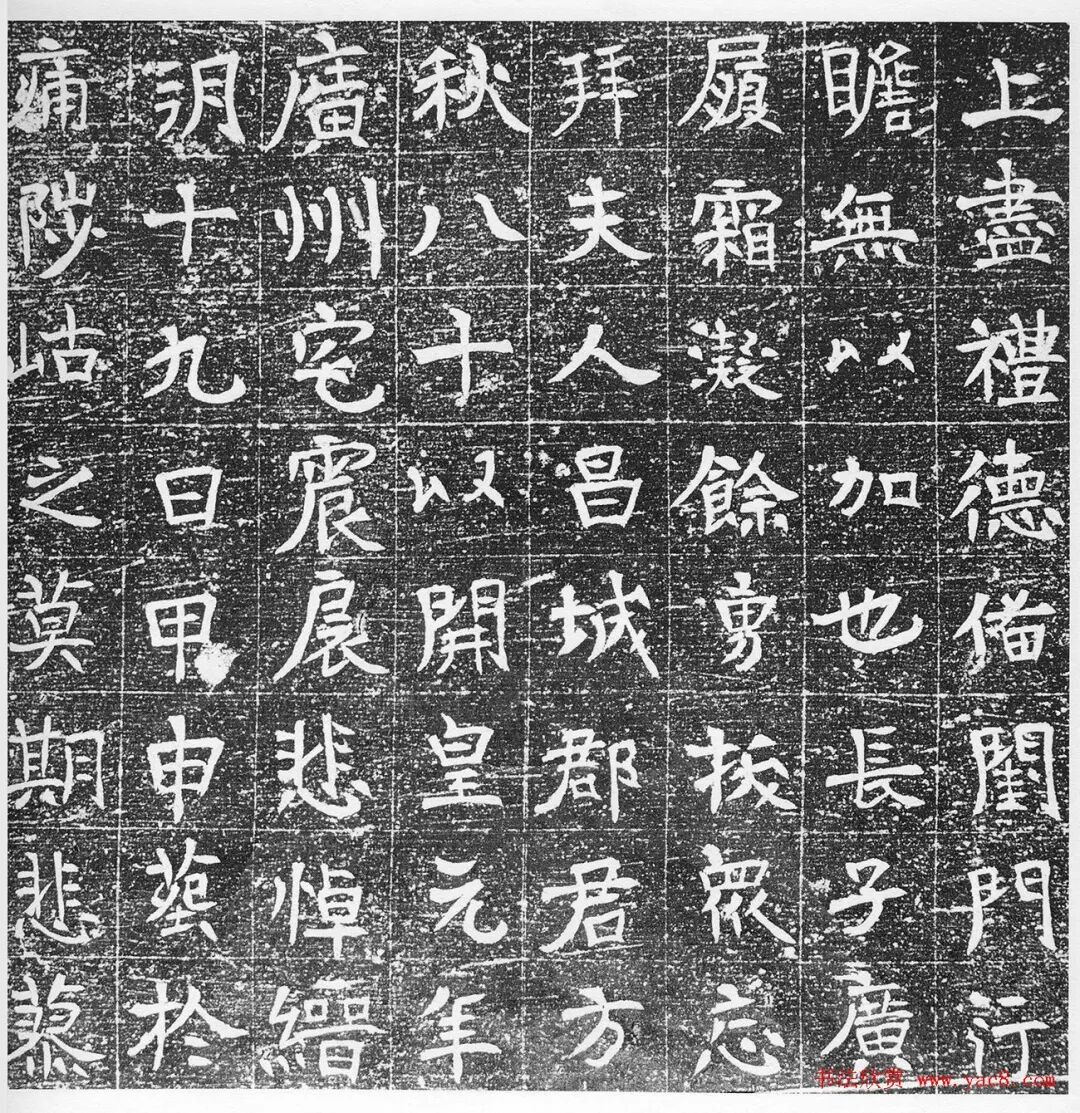 上盡禮德備閨門行
瞻無以加也長子廣
履霜凝餘勇拔眾忘
拜夫人昌城郡君方
秋八十以開皇元年
廣州宅震展悲悼縉
十九日甲申葬於
痛陟岵之莫期悲蓼
书法欣赏 www.yac8.com